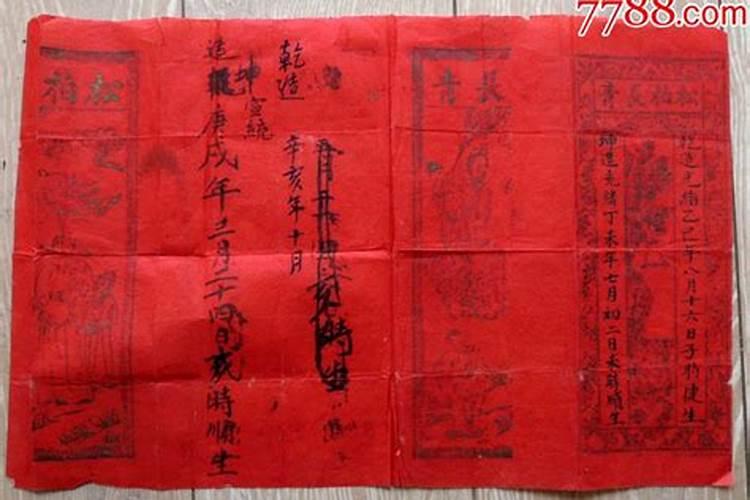 7788.com
松柏長青
乾造光緒乙巳年八月十六日子時健生
坤造光緒丁未年七月初二日未時順生
長青
乾造
辛亥年十月
時生
坤
宣統
造
庚戌年三月二十四日
時順生
松柏